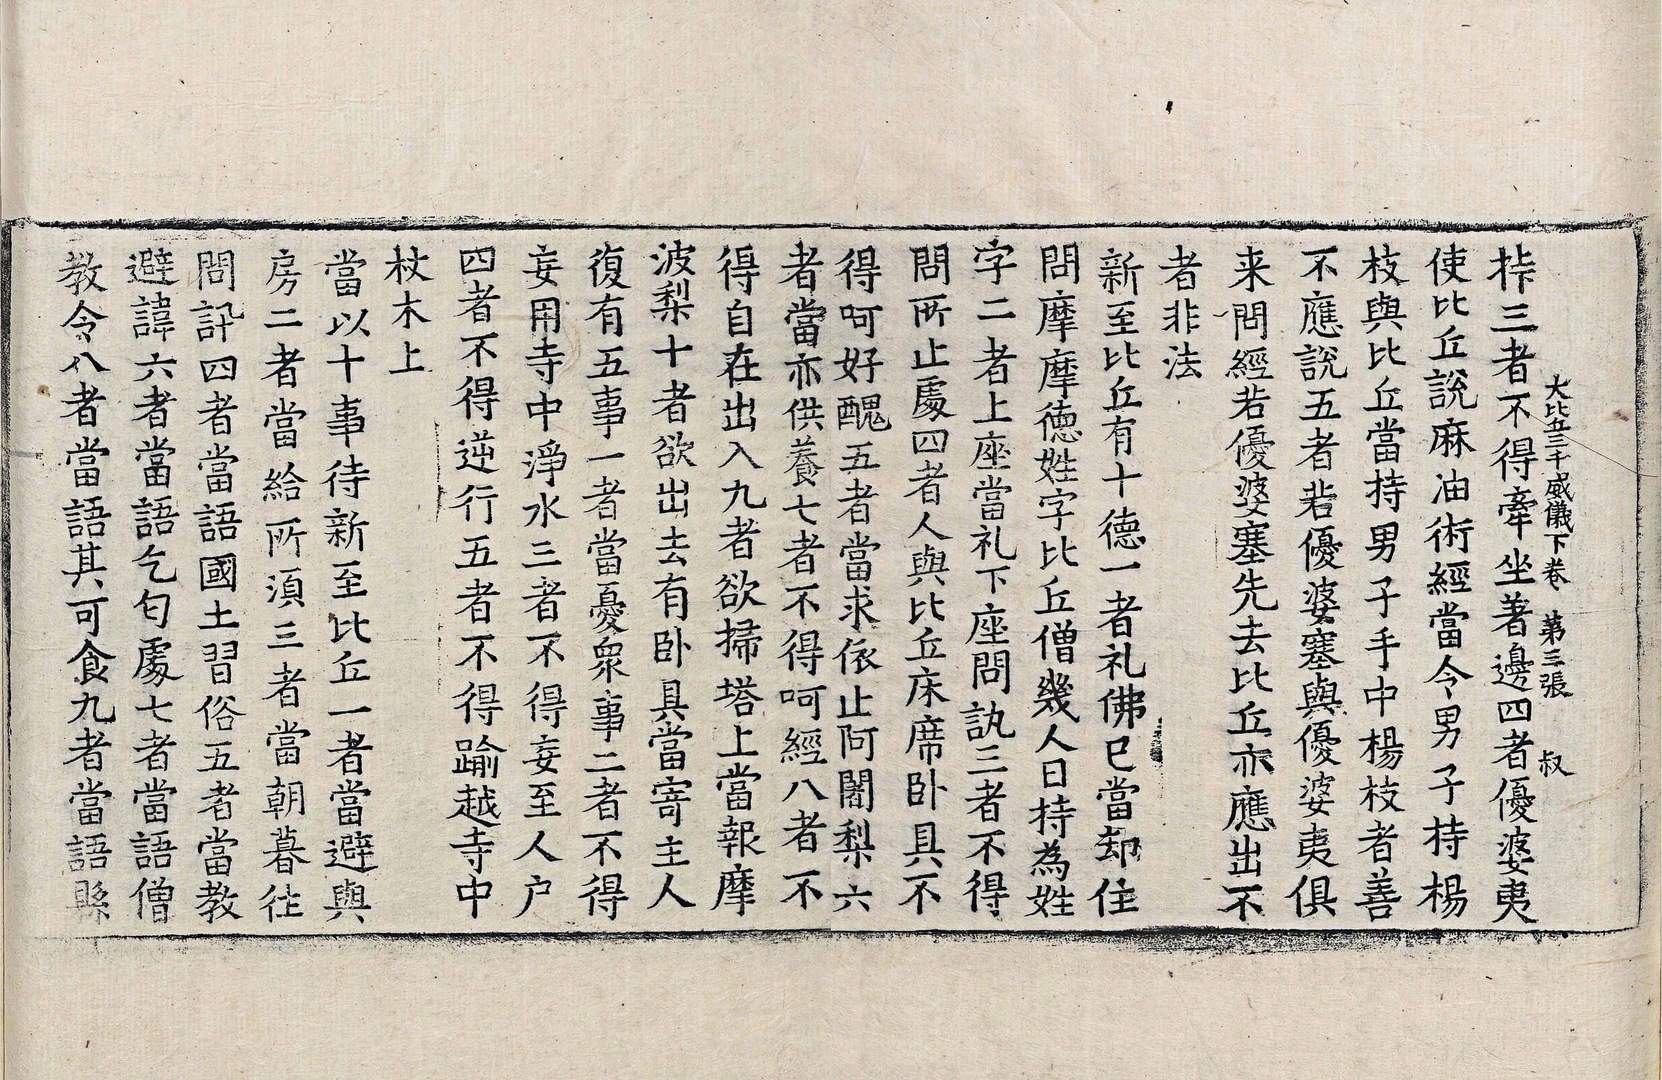 大比丘三千威儀下卷 第三張 叔
桙三者不得牽坐著邊四者優婆夷
使比丘說麻油術經當令男子持楊
枝與比丘當持男子手中楊枝者善
不應說五者若優婆塞與優婆夷俱
来問經若優婆塞先去比丘亦應出不
者非法
新至比丘有十德一者礼佛已當却住
問摩摩德姓字比丘僧幾人日持為姓
字二者上座當礼下座問訊三者不得
問所止處四者人與比丘床席卧具不
得呵好醜五者當求依止阿闍梨六
者當亦供養七者不得呵經八者不
得自在出入九者欲掃塔上當報摩
波梨十者欲出去有卧具當寄主人
復有五事一者當憂衆事二者不得
妄用寺中淨水三者不得妄至人户
四者不得逆行五者不得踰越寺中
杖木上
當以十事待新至比丘一者當避與
房二者當給所湏三者當朝暮往
問訊四者當語國土習俗五者當教
避諱六者當語乞匂處七者當語僧
教令八者當語其可食九者當語縣